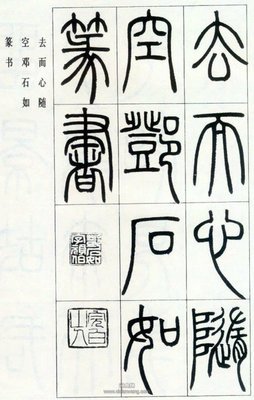 去而心随
空邓石如
篆书
去而心隨
空鄧石如
篆書
完白
山人